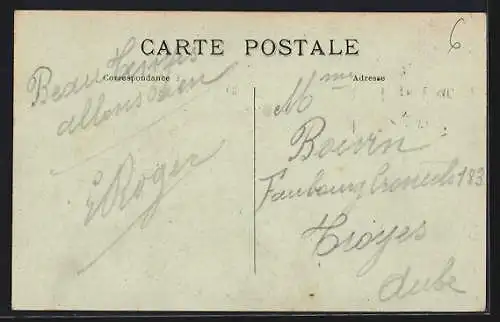 6
CARTE POSTALE
Correspondance
Adresse
Beau temps
allons bien
E Roger
Mme
Boivin
Faubourg Croncels 183
Troyes
Aube